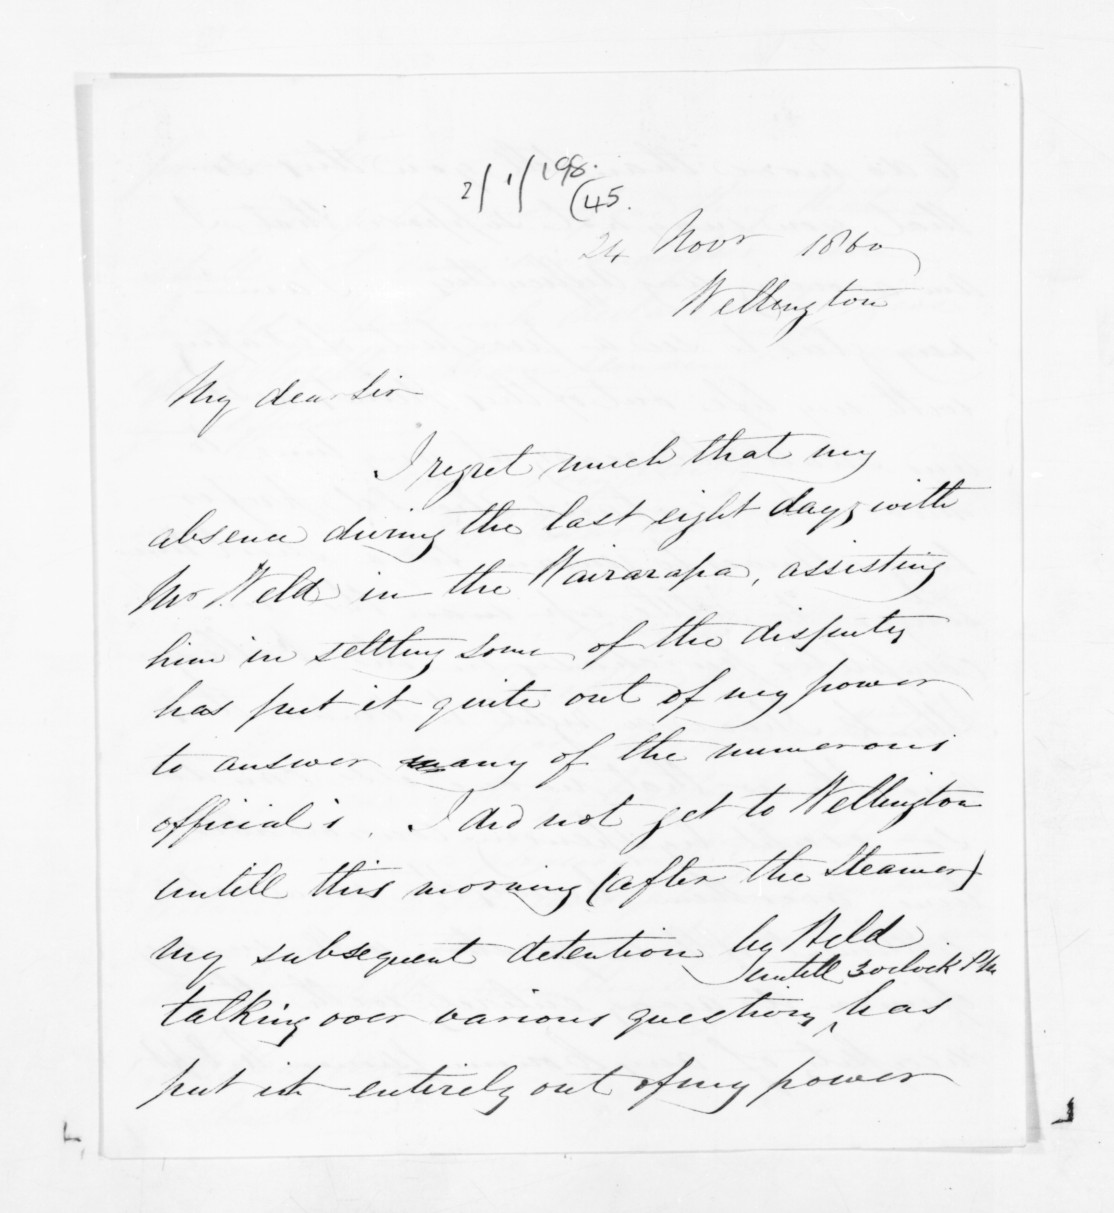 2/1/198.
(45.
24 Novr 1860
Wellington
My dear Sir
I regret much that my
absence during the last eight days with
Mr Weld in the Wairarapa, assisting
him in settling some of the disputes
has put it quite out of my power
to answer many of the numerous
official's. I did not get to Wellington
untill this morning (after the Steamer)
my subsequent detention by Weld
untill 3 oclock PM
talking over various questions ^ has
put it entirely out of my power